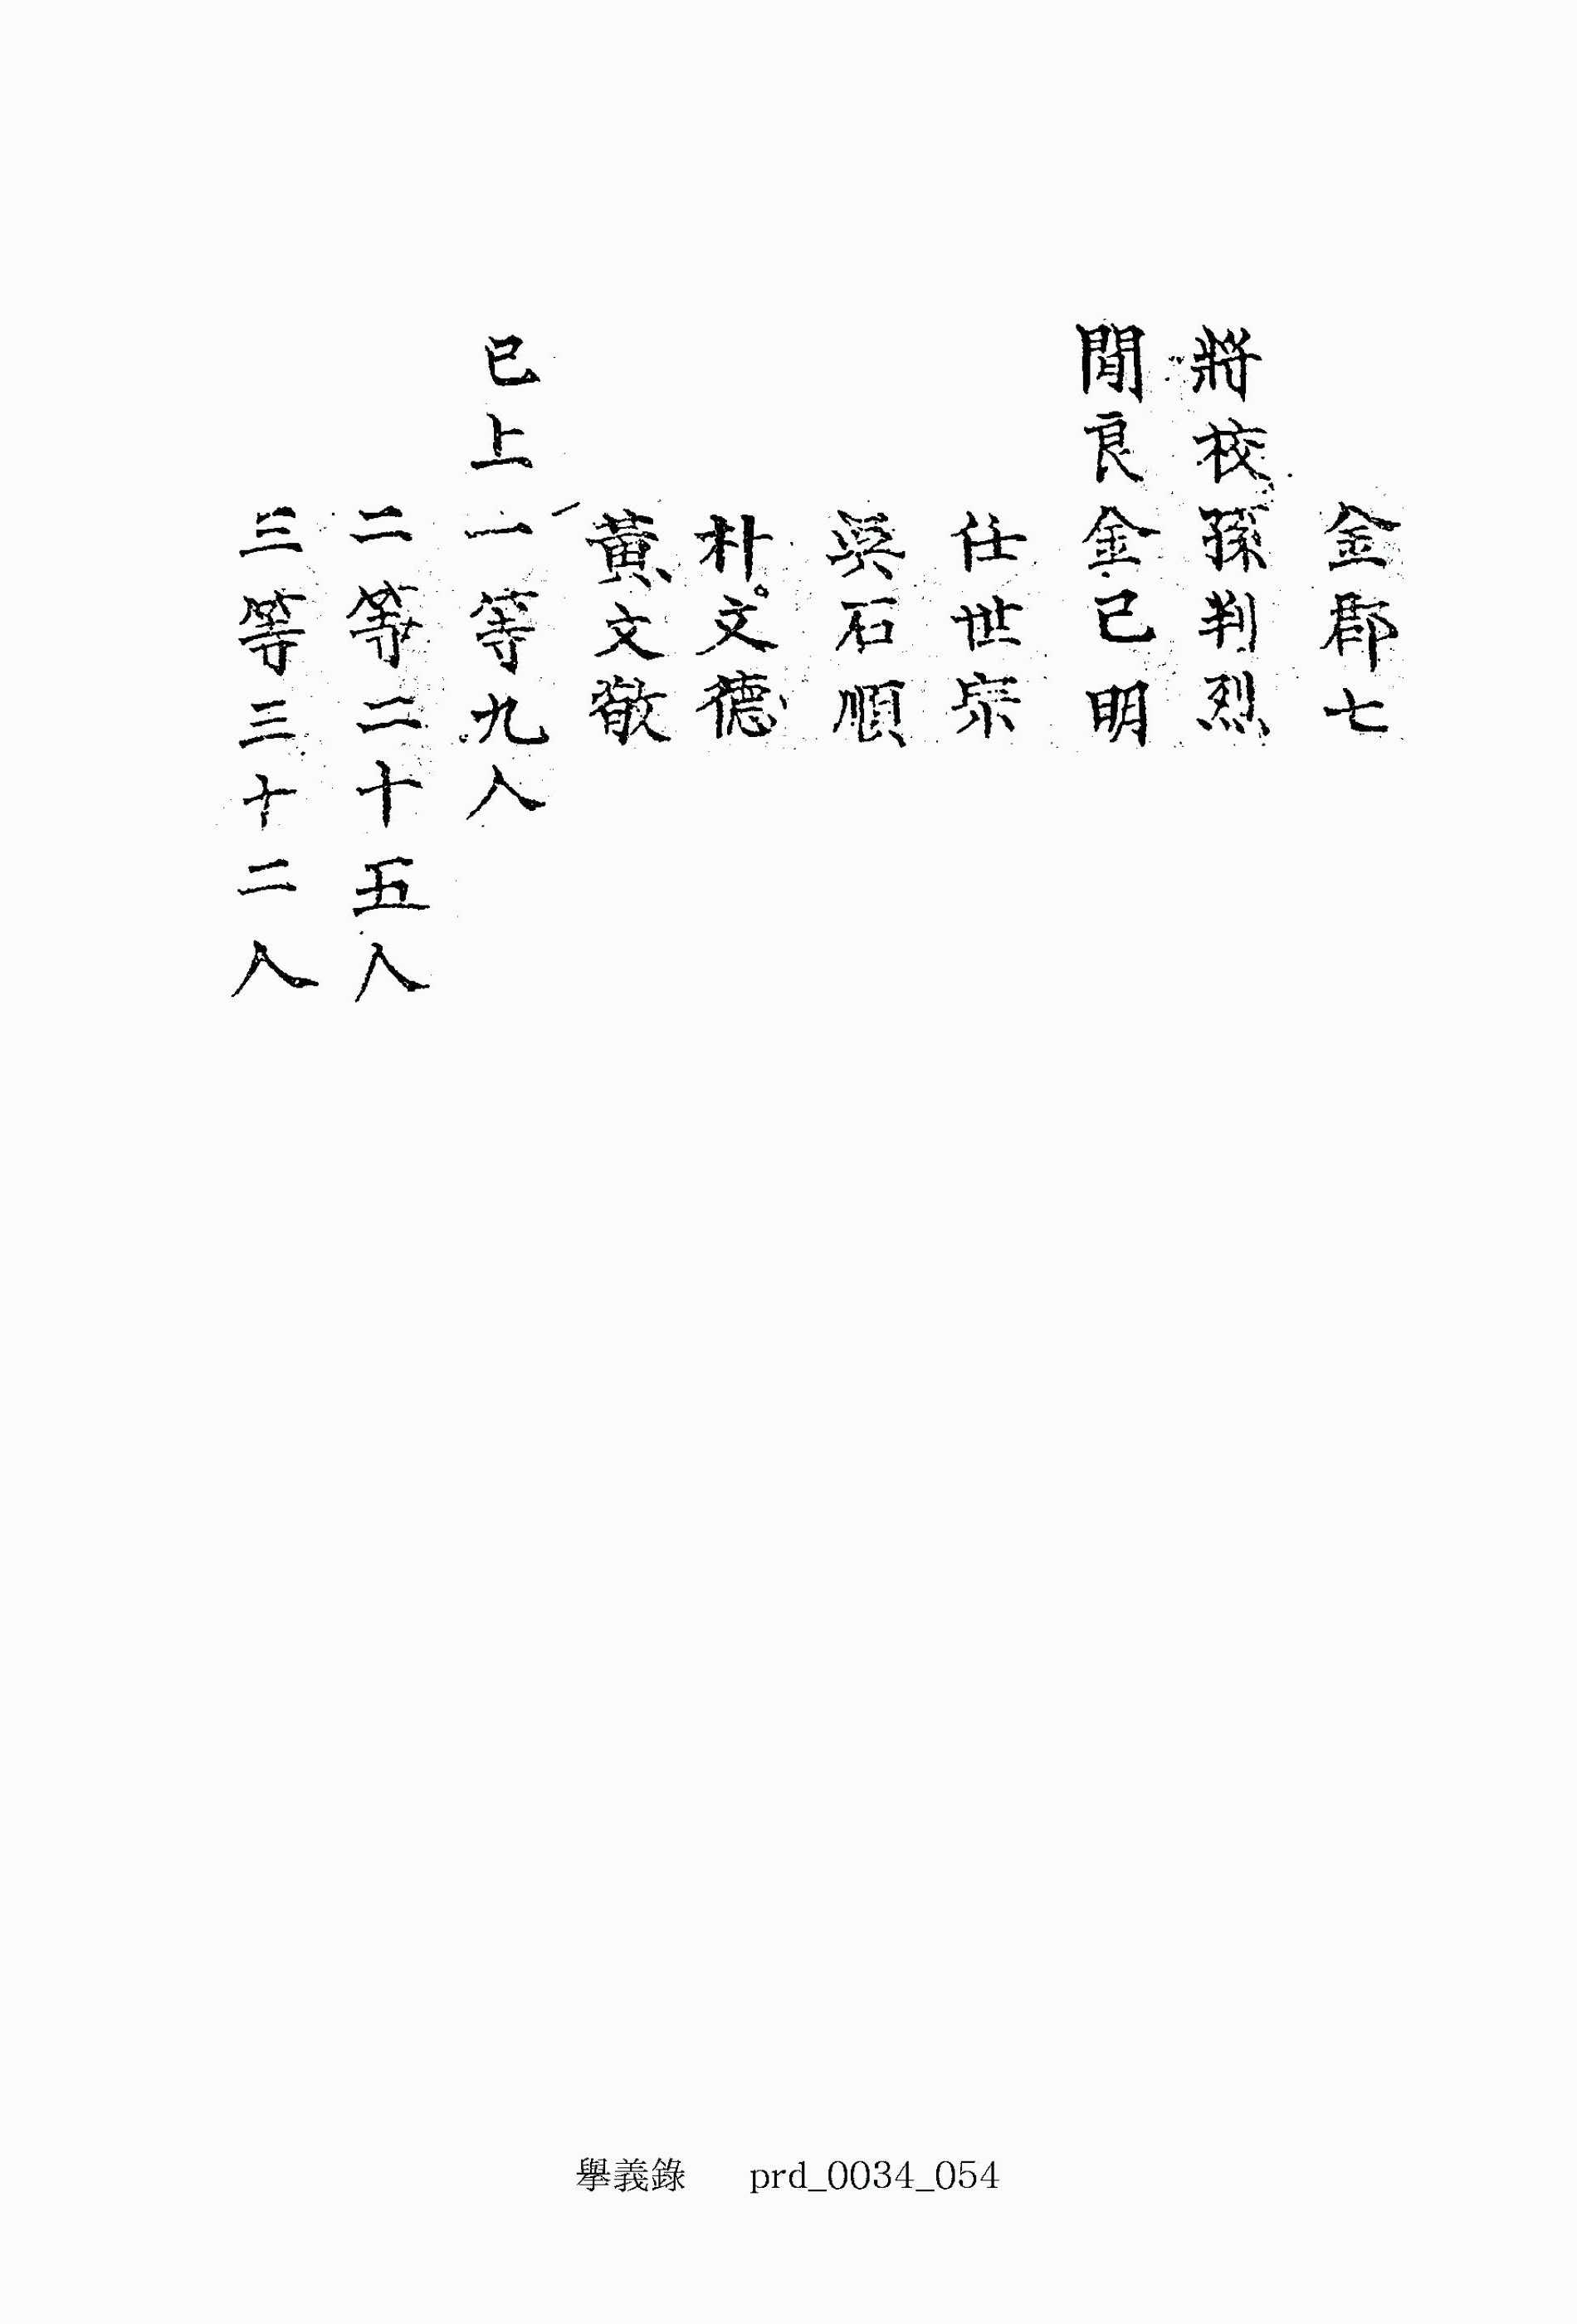 金郡七
將校孫判烈
閒良金己明
任世宗
吳石順
朴文德
黃文敬
已上一等九人
二等二十五人
三等三十二人
擧義錄 prd_0034_054